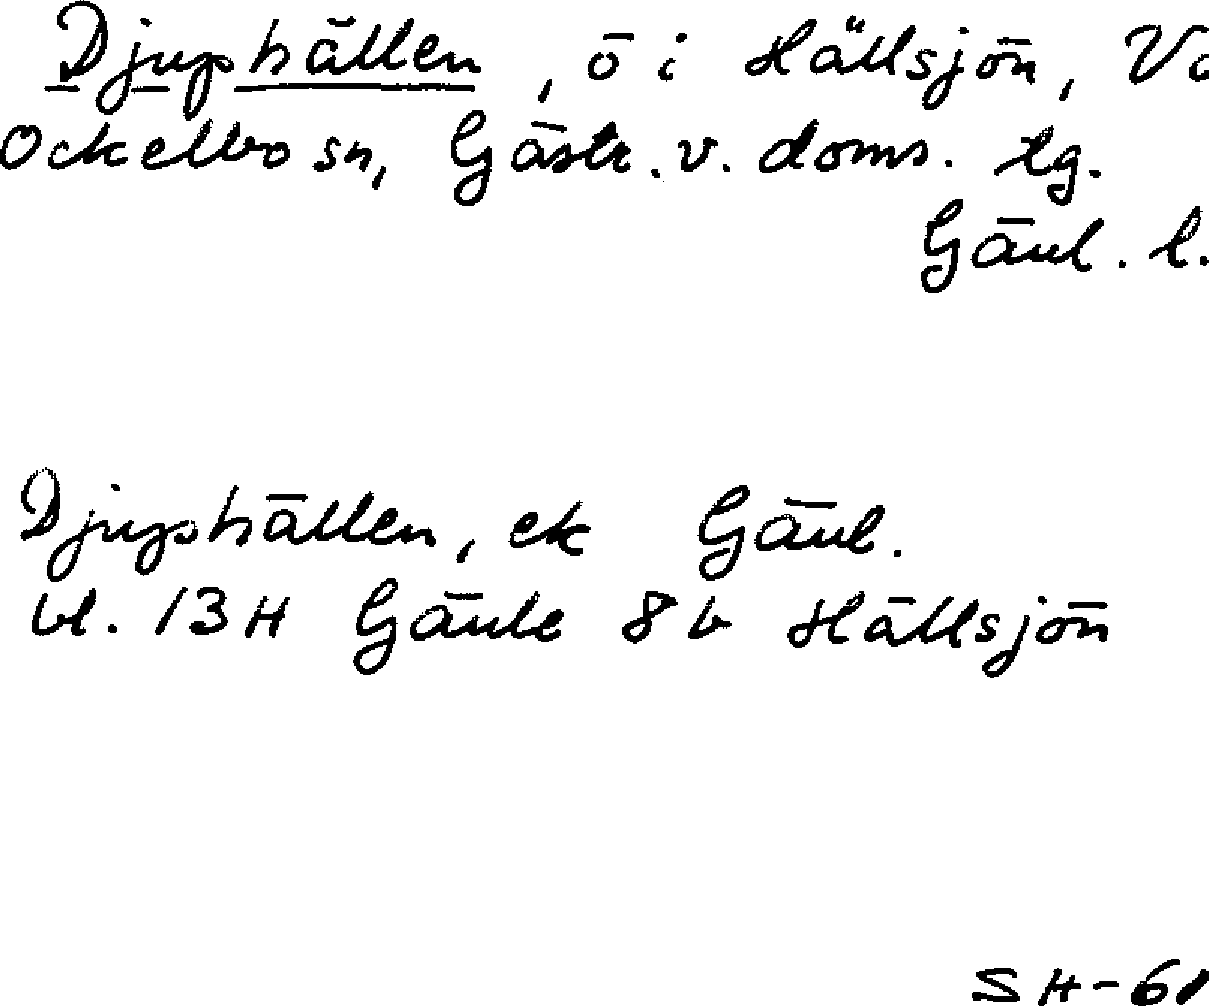 Djuphällen, ö i Hällsjön,
Ockelbo sn, Gästr. v. doms. tg.
Gävl. l.
Djuphällen, ek Gävl.
bl. 13H Gävle 8b Hällsjön